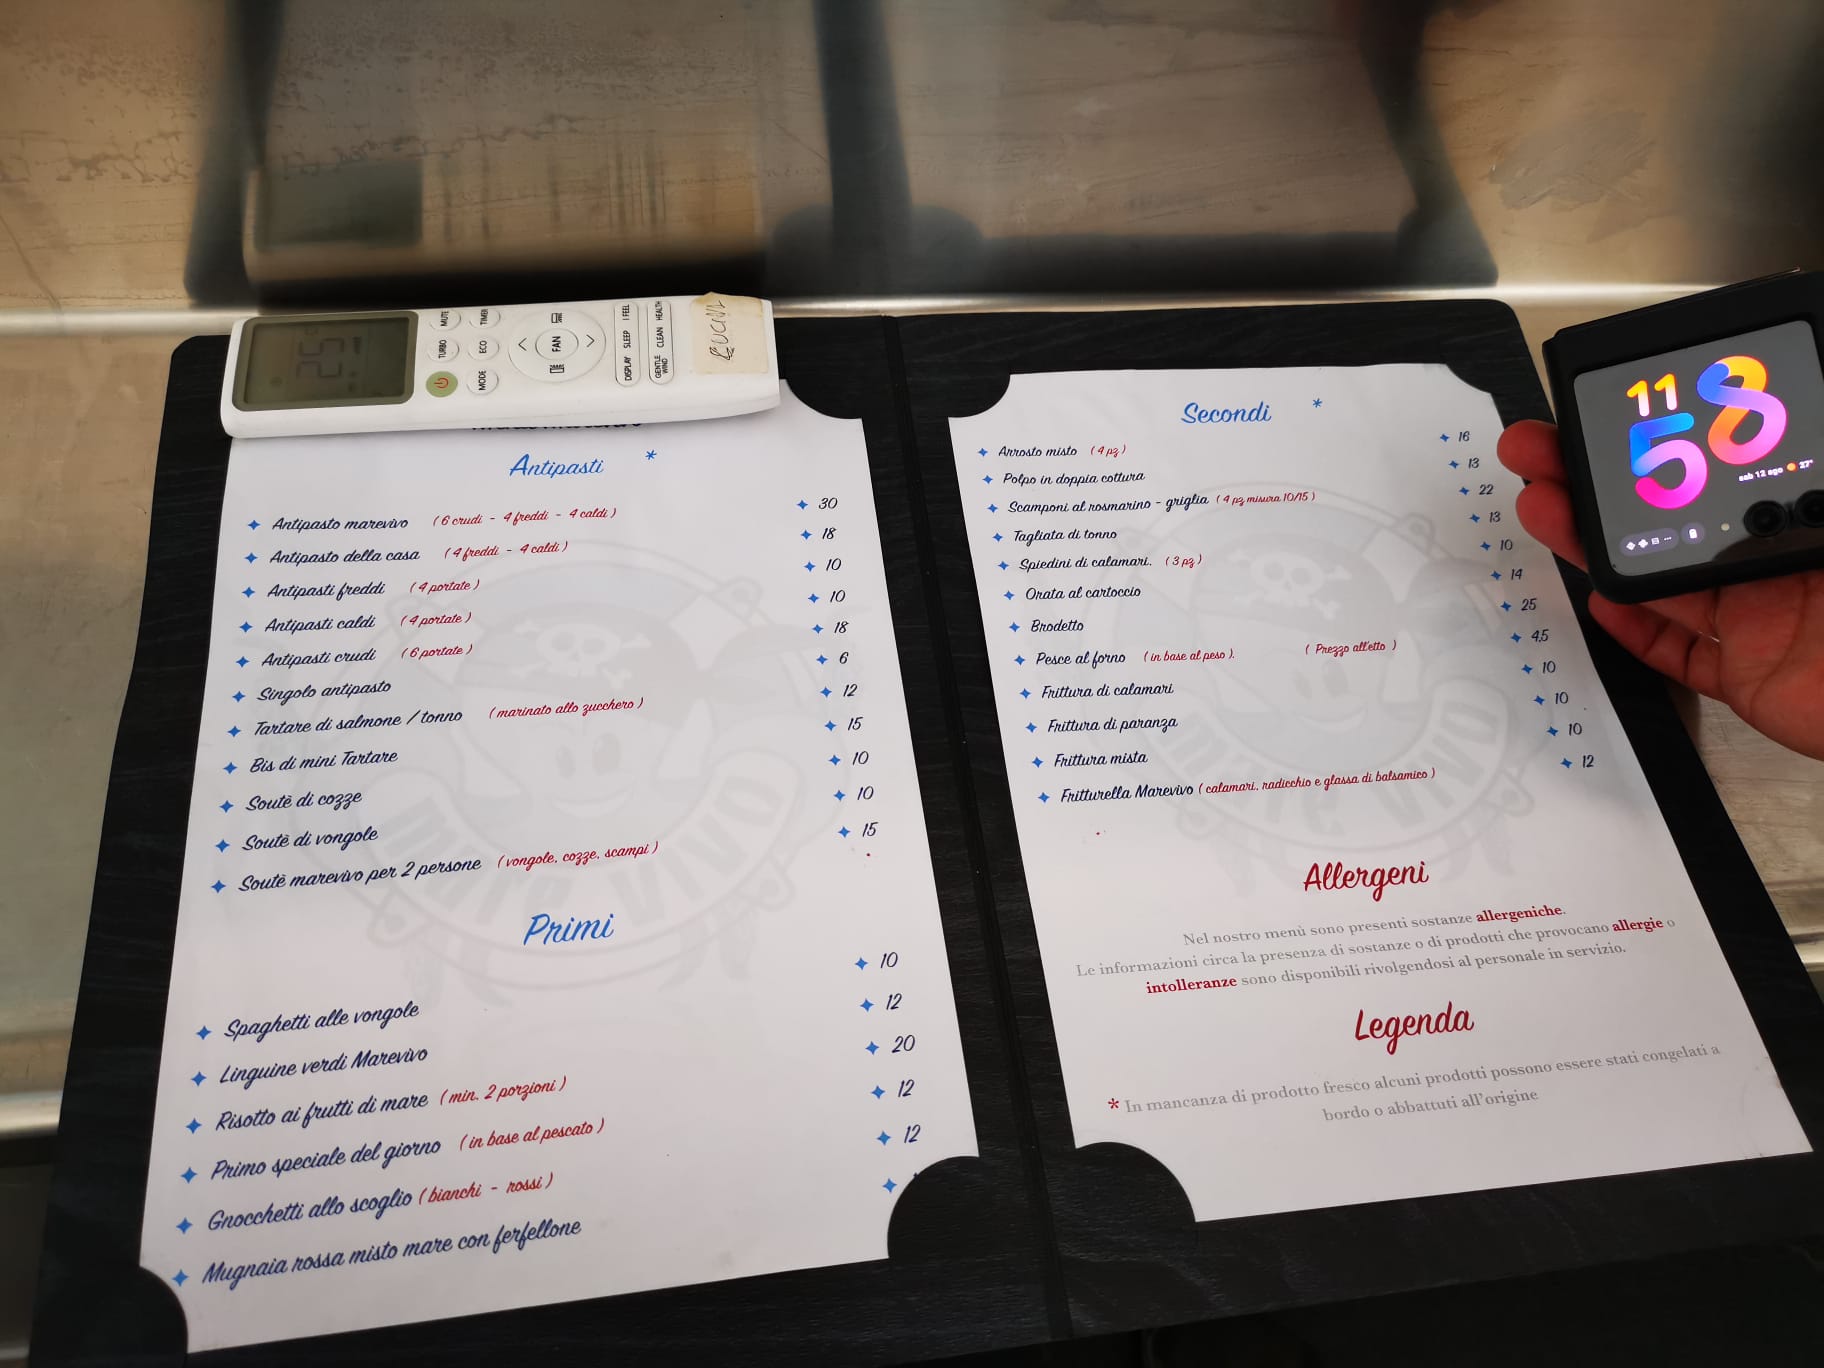 25
MUTE
TIMER
TURBO
ECO
MODE
FAN
DISPLAY
SLEEP
I FEEL
GENTLE WIND
CLEAN
HEALTH
CUCINA
Antipasti *
Antipasto marevivo ( 6 crudi - 4 freddi - 4 caldi ) 30
Antipasto della casa ( 4 freddi - 4 caldi ) 18
Antipasti freddi ( 4 portate ) 10
Antipasti caldi ( 4 portate ) 10
Antipasti crudi ( 6 portate ) 18
Singolo antipasto 6
Tartare di salmone / tonno ( marinato allo zucchero ) 12
Bis di mini Tartare 15
Soutè di cozze 10
Soutè di vongole 10
Soutè marevivo per 2 persone ( vongole, cozze, scampi ) 15
Primi
Spaghetti alle vongole 10
Linguine verdi Marevivo 12
Risotto ai frutti di mare ( min. 2 porzioni ) 20
Primo speciale del giorno ( in base al pescato ) 12
Gnocchetti allo scoglio ( bianchi - rossi ) 12
Mugnaia rossa misto mare con ferfellone
Secondi *
Arrosto misto ( 4 pz ) 16
Polpo in doppia cottura 13
Scamponi al rosmarino - griglia ( 4 pz misura 10/15 ) 22
Tagliata di tonno 13
Spiedini di calamari. ( 3 pz ) 10
Orata al cartoccio 14
Brodetto 25
Pesce al forno ( in base al peso ). ( Prezzo all'etto ) 4,5
Frittura di calamari 10
Frittura di paranza 10
Frittura mista 10
Fritturella Marevivo ( calamari, radicchio e glassa di balsamico ) 12
Allergeni
Nel nostro menù sono presenti sostanze allergeniche.
Le informazioni circa la presenza di sostanze o di prodotti che provocano allergie o
intolleranze sono disponibili rivolgendosi al personale in servizio.
Legenda
* In mancanza di prodotto fresco alcuni prodotti possono essere stati congelati a
bordo o abbattuti all'origine
mare vivo
11
58
sab 12 ago 27°